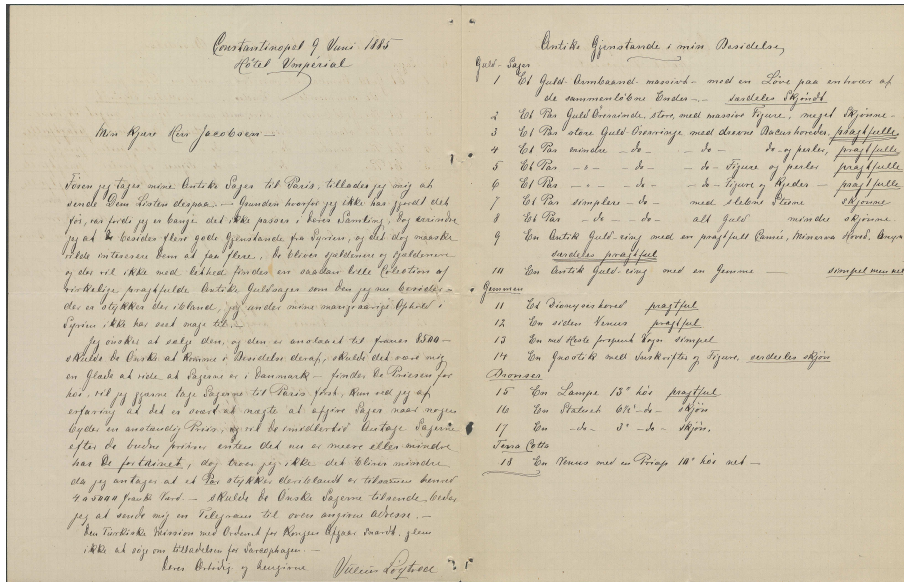 Constantinopel 9 Juni 1885
Hôtel Impérial
Min kjære Herr Jacobsen —
Förend jeg tager mine Antike Sager til Paris, tillader jeg mig at
sende Dem Listen derpaa. — Grunden hvorfor jeg ikke har gjordt det
för, var fordi jeg er bange det ikke passer i Deres Samling, dog
jeg at De besidder flere gode Gjenstande fra Syrien, og det dog maaske
vilde interessere Dem at faa flere, De bliver sjeldnere og sjeldnere
og der vil ikke med lethed findes en saadan lille Colection af
virkelige pragtfulde Antike Guldsager som den jeg nu besidder
der er stykker der iblandt, jeg under mine mangeaarige Ophold i
Syrien ikke har seet mage til. —
Jeg önsker at sælge den, og den er anslaaet til francs 8500 —
skulde De Önske at komme i Besiddelse deraf, skulde det være mig
en Glæde at vide at Sagerne er i Danmark — finder De Priisen for
höi, vil jeg gjerne tage Sagerne til Paris först, kun ved jeg af
erfaring at det er svært at nægte at afgive Sager naar nogen
byder en anstændig Priis, og vil De imidlertid Antage Sagerne
efter de priiser enten det nu er meere eller mindre
har De fortrinet, dog troer jeg ikke det bliver mindre
da jeg antager at et Par stykker deriblandt er tilsammen henved
4 a 5000 frank Værd. — skulde De Önske Sagerne tilsendt beder
jeg at sende mig en Telegram til oven angivne adresse. —
Den Türkiske Mission med Ordenet for Kongen afgaar snardt, glem
ikke at söge om tilladelsen for Sarcophagen. —
Deres Ærbödig og hengivne
Julius Löytved
Antike Gjenstande i min Besidelse
Guld-Sager
1 Et Guld-Armbaand massivt — med en Löve paa enhver af
de sammenlöbne Ender — særdeles Skjöndt
2 Et Par Guld Öreringe, store, med massive Figure, meget Skjönne —
3 Et Par store Guld Öreringe med Bacushoveder, pragtfulle
4 Et Par mindre —do— —do— do— og perler, pragtfulle
5 Et Par — " — —do— —do— Figure og perler pragtfulle
6 Et Par — " — —do— —do— Figure og Kjeder — pragtfulle
7 Et Par simplere —do— med slebne Steene skjönne
8 Et Par —do— —do— alt Guld mindre skjönne
9 En Antik Guld-ring med en pragtfuld Camé, Minerva Hoved,
særdeles pragtful
10 En Antik Guld-ring med en Gemme — simpel men net
Gemmen
11 Et Dionysershoved pragtful
12 En siden Venus pragtful
13 En med Heste forspendt Vogn simpel
14 En Gnostik med Inskrifter og Figure, særdeles skjön
Bronser
15 En Lampe 13" höi pragtful
16 En Statuet 6½" —do— skjön
17 En —do— 3" —do— skjön.
Terra Cotta
18 En Venus med en Priap 10" höi net —